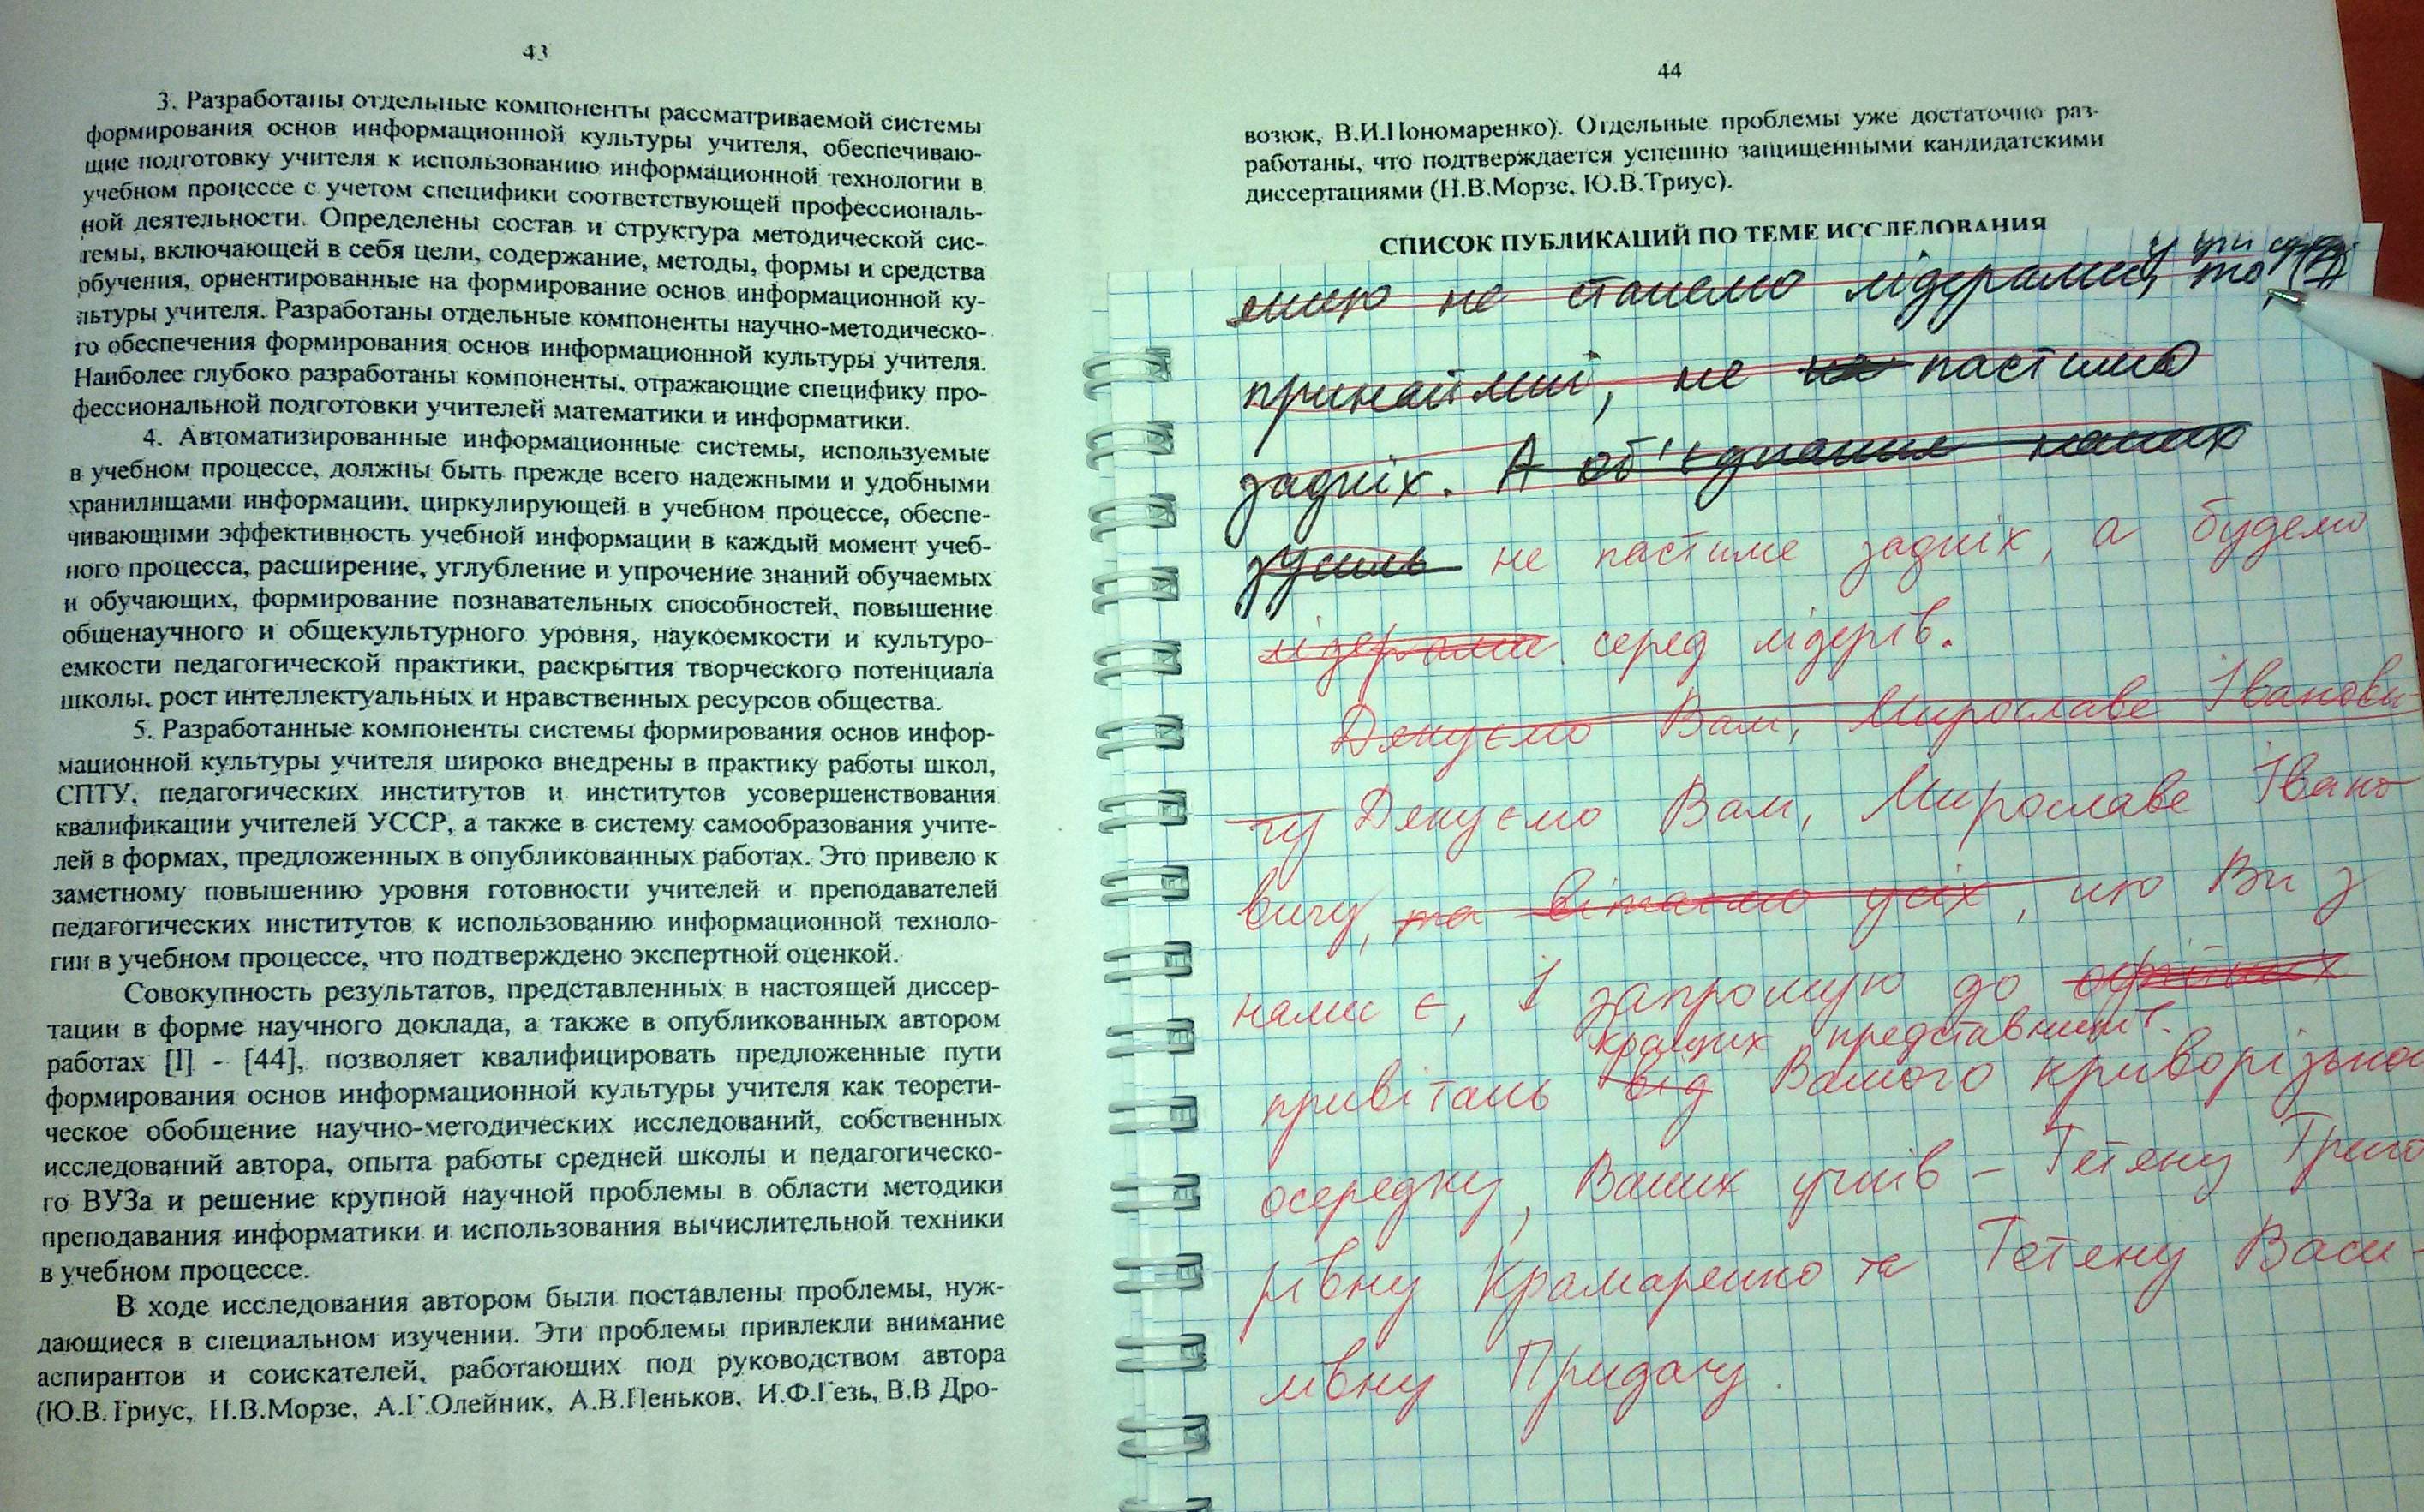 43
3. Разработаны отдельные компоненты рассматриваемой системы
формирования основ информационной культуры учителя, обеспечиваю-
щие подготовку учителя к использованию информационной технологии в
учебном процессе с учетом специфики соответствующей профессиональ-
ной деятельности. Определены состав и структура методической сис-
темы, включающей в себя цели, содержание, методы, формы и средства
обучения, ориентированные на формирование основ информационной ку-
льтуры учителя. Разработаны отдельные компоненты научно-методическо-
го обеспечения формирования основ информационной культуры учителя.
Наиболее глубоко разработаны компоненты, отражающие специфику про-
фессиональной подготовки учителей математики и информатики.
4. Автоматизированные информационные системы, используемые
в учебном процессе, должны быть прежде всего надежными и удобными
хранилищами информации, циркулирующей в учебном процессе, обеспе-
чивающими эффективность учебной информации в каждый момент учеб-
ного процесса, расширение, углубление и упрочение знаний обучаемых
и обучающих, формирование познавательных способностей, повышение
общенаучного и общекультурного уровня, наукоемкости и культуро-
емкости педагогической практики, раскрытия творческого потенциала
школы, рост интеллектуальных и нравственных ресурсов общества.
5. Разработанные компоненты системы формирования основ инфор-
мационной культуры учителя широко внедрены в практику работы школ,
СПТУ, педагогических институтов и институтов усовершенствования
квалификации учителей УССР, а также в систему самообразования учите-
лей в формах, предложенных в опубликованных работах. Это привело к
заметному повышению уровня готовности учителей и преподавателей
педагогических институтов к использованию информационной техноло-
гии в учебном процессе, что подтверждено экспертной оценкой.
Совокупность результатов, представленных в настоящей диссер-
тации в форме научного доклада, а также в опубликованных автором
работах [1] - [44], позволяет квалифицировать предложенные пути
формирования основ информационной культуры учителя как теорети-
ческое обобщение научно-методических исследований, собственных
исследований автора, опыта работы средней школы и педагогическо-
го ВУЗа и решение крупной научной проблемы в области методики
преподавания информатики и использования вычислительной техники
в учебном процессе.
В ходе исследования автором были поставлены проблемы, нуж-
дающиеся в специальном изучении. Эти проблемы привлекли внимание
аспирантов и соискателей, работающих под руководством автора
(Ю.В.Триус, Н.В.Морзе, А.Г.Олейник, А.В.Пеньков, И.Ф.Гезь, В.В Дро-
44
возюк, В.И.Пономаренко). Отдельные проблемы уже достаточно раз-
работаны, что подтверждается успешно защищенными кандидатскими
диссертациями (Н.В.Морзе, Ю.В.Триус).
СПИСОК ПУБЛИКАЦИЙ ПО ТЕМЕ ИССЛЕДОВАНИЯ
якщо не станемо лідерами, то,
принаймні, не не пастимо
задніх. А об'єднання наших
зусиль не пастиме задніх, а будемо
лідерами серед лідерів.
Дякуємо Вам, Мирославе Іванови-
чу Дякуємо Вам, Мирославе Івано-
вичу, та вітаємо усіх, що Ви з
нами є, і запрошую до
кращих представників
привітань від Вашого криворізько
осередку, Ваших учнів – Тетяну Григо
рівну Крамаренко та Тетяну Васи-
лівну Придачу.